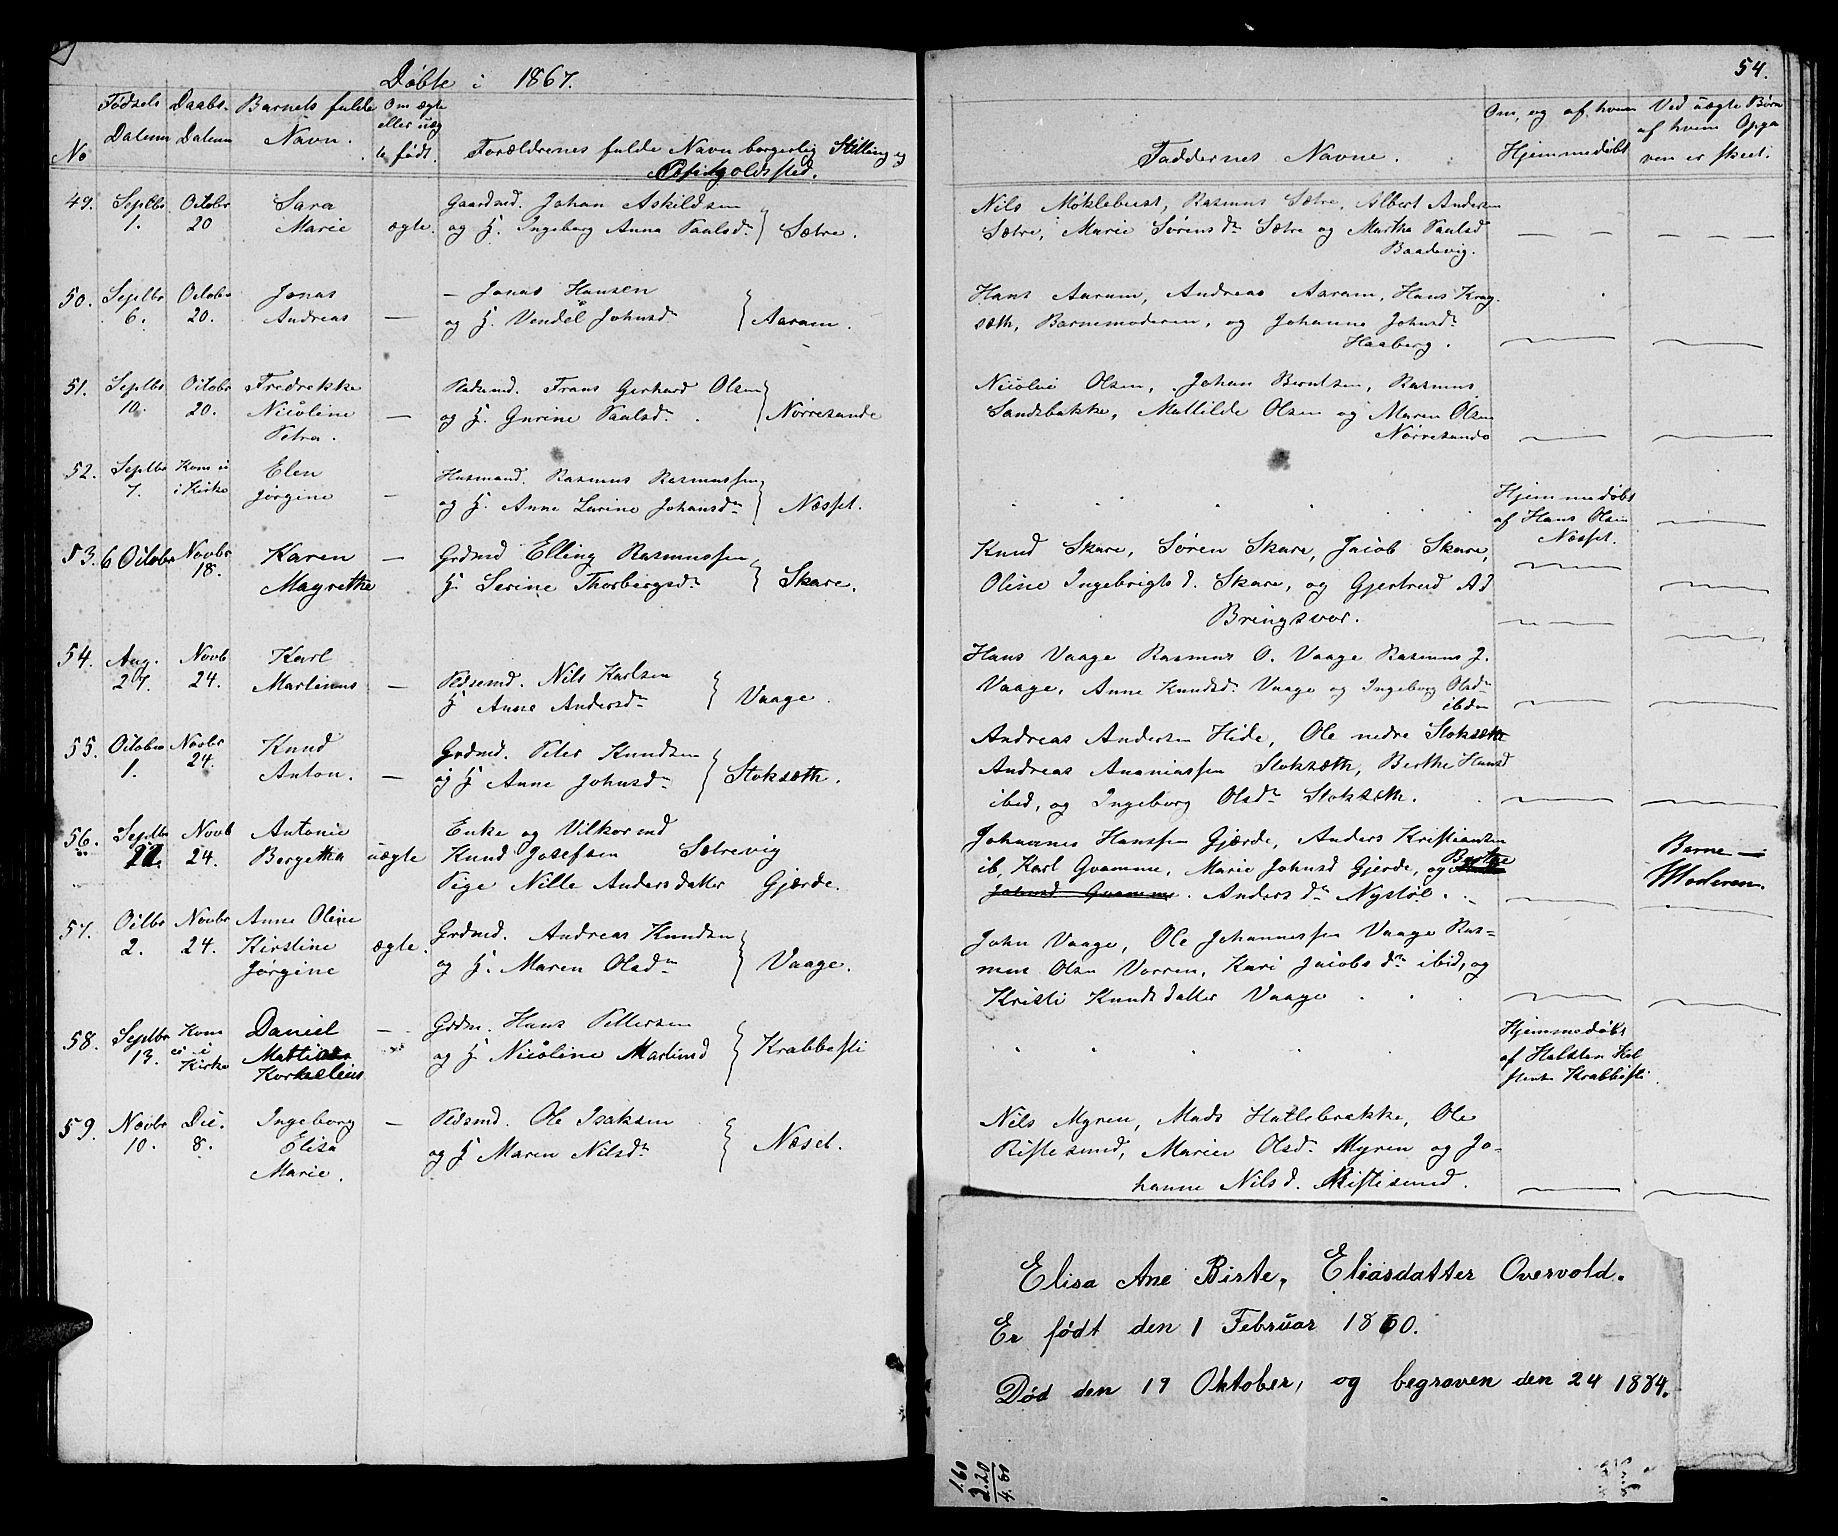 Døbte i 1867.
54.
No
Fødsels Datum
Daabs- Datum
Barnets fulde Navn.
Om ægte eller uæg te født.
Forældrenes fulde Navn borgerlig Stilling og
Faddernes Navne.
Om, og af hvem Hjemmedøbt
Ved uægte Børn af hvem Opga ven er skeet.
49. Septbr 1. Octobr 20 Sara Marie ægte.
Gaardmd. Johan Askildsen
og H. Ingeborg Anna Paulsdr } Sætre.
Nils Møklebust, Rasmus Sætre, Albert Andersen
Sætre, Marie Sørensdr Sætre og Martha Paulsd
Baadevig.
50. Septbr 6. Octobr 20. Jonas Andreas —
— Jonas Hansen
og H. Vendel Johnsdr } Aaram.
Hans Aaram, Andreas Aaram, Hans Krag
sæth, Barnemoderen, og Johanne Johnsdr
Haaberg.
51. Septbr 10. Octobr 20. Fredrekke Nicoline Petra. —
Pladsmd. Frans Gerhard Olsen
og H. Gurine Paulsdr } Nørresande
Nicolai Olsen, Johan Berntsen, Rasmus
Sandsbakke, Mathilde Olsen og Maren Olsen
Nørresande
52. Septbr 7. Kom ei i Kirke Elen Jørgine —
Husmand. Rasmus Rasmussen
og H. Anne Lurine Johansdr } Næsset.
Hjemmedøbt
af Hans Olsen
Næsset.
53. 6 Octobr Novbr 18. Karen Magrethe —
Grdmd Elling Rasmussen
H. Serine Thorbergsdr } Skare.
Knud Skare, Søren Skare, Jacob Skare,
Oline Ingebrigtsd. Skare, og Gjertrud A d
Bringsvor.
54. Aug. 27. Novb 24. Karl Martinus —
Pldsemd. Nils Karlsen
H Anne Andersdr } Vaage.
Hans Vaage Rasmus O. Vaage Rasmus J.
Vaage, Anne Knudsdr Vaage og Ingeborg Olsdr
ibdm
55. Octobr 1. Novbr 24. Knud Anton. —
Grdmd. Peter Knudsen
og H Anne Johnsdr } Stoksæth.
Andreas Andersen Hide, Ole nedre Stoksæth
Andreas Ananiassen Stoksæth, Berthe Hansd
ibid, og Ingeborg Olsdr Stoksæth.
56. Septbr Novb 24. Antonie Bergitha uægte
Enke og Vilkormd
Knud Josefsen Sætrevig
Pige Nille Andersdatter Gjærde.
Johannes Hanssen Gjærde, Anders Kristiansen
ib, Karl Qvamme, Marie Johnsd Gjerde, og Berthe
Johnsd Qvamme. Andersdr Nystøl.
Barne-
Moderen.
57. Octbr 2. Novbr 24. Anne Oline Kirstine Jørgine ægte.
Grdmd. Andreas Knudsen
og H. Maren Olsdr } Vaage.
John Vaage, Ole Johannessen Vaage Ras-
mus Olsen Vorren, Kari Jacobsdr ibid, og
Kristi Knudsdatter Vaage
58. Septbr 13. Kom ei i Kirke Daniel Kornelius —
Grdm. Hans Pettersen
og H Nicoline Martinsd } Krabbesti
Hjemmedøbt
af Halsten Hal
stens Krabbesti.
59. Novbr 10. Dec. 8. Ingeborg Elisa Marie. —
Pldsmd. Ole Isaksen
og H Maren Nilsdr } Næset.
Nils Myren, Mads Hatlebrække, Ole
Ristesund, Marie Olsdr Myren og Jo-
hanne Nilsd. Ristesund.
Elisa Ane Birte, Eliasdatter Overvold.
Er født den 1 Februar 1860.
Død den 19 Oktober, og begraven den 24 1884.
1.60
2.20